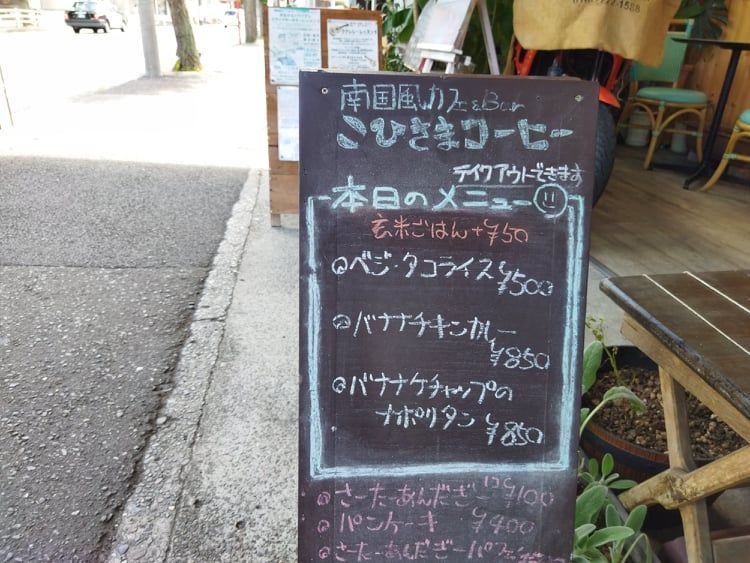 南国風カフェ&Bar
こひさまコーヒー
テイクアウトできます
本日のメニュー
玄米ごはん+¥50
ベジ・タコライス ¥500
バナナチキンカレー
¥850
バナナケチャップの
ナポリタン ¥850
さーたーあんだぎー 1コ ¥100
パンケーキ ¥400
さーたーあんだぎーパフェ